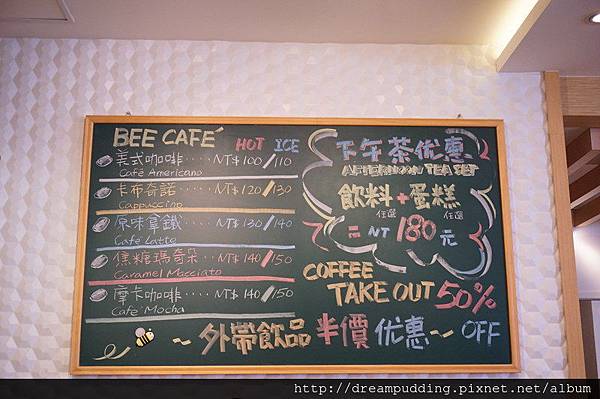 BEE CAFÉ HOT ICE
美式咖啡‥‥NT$100/110
Café Americano
卡布奇諾‥‥NT$120/130
Cappuccino
原味拿鐵‥‥NT$130/140
Café Latte
焦糖瑪奇朵‥NT$140/150
Caramel Macciato
摩卡咖啡‥‥NT$140/150
Café Mocha
下午茶优惠
AFTERNOON TEA SET
飲料+蛋糕
任選 任選
=NT 180元
COFFEE
TAKE OUT 50%
OFF
~外帶飲品半價优惠~
http://dreampudding.pixnet.net/album